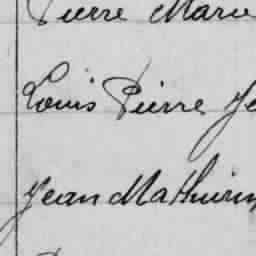 Pierre Marie
Louis Pierre Je
Jean Mathurin